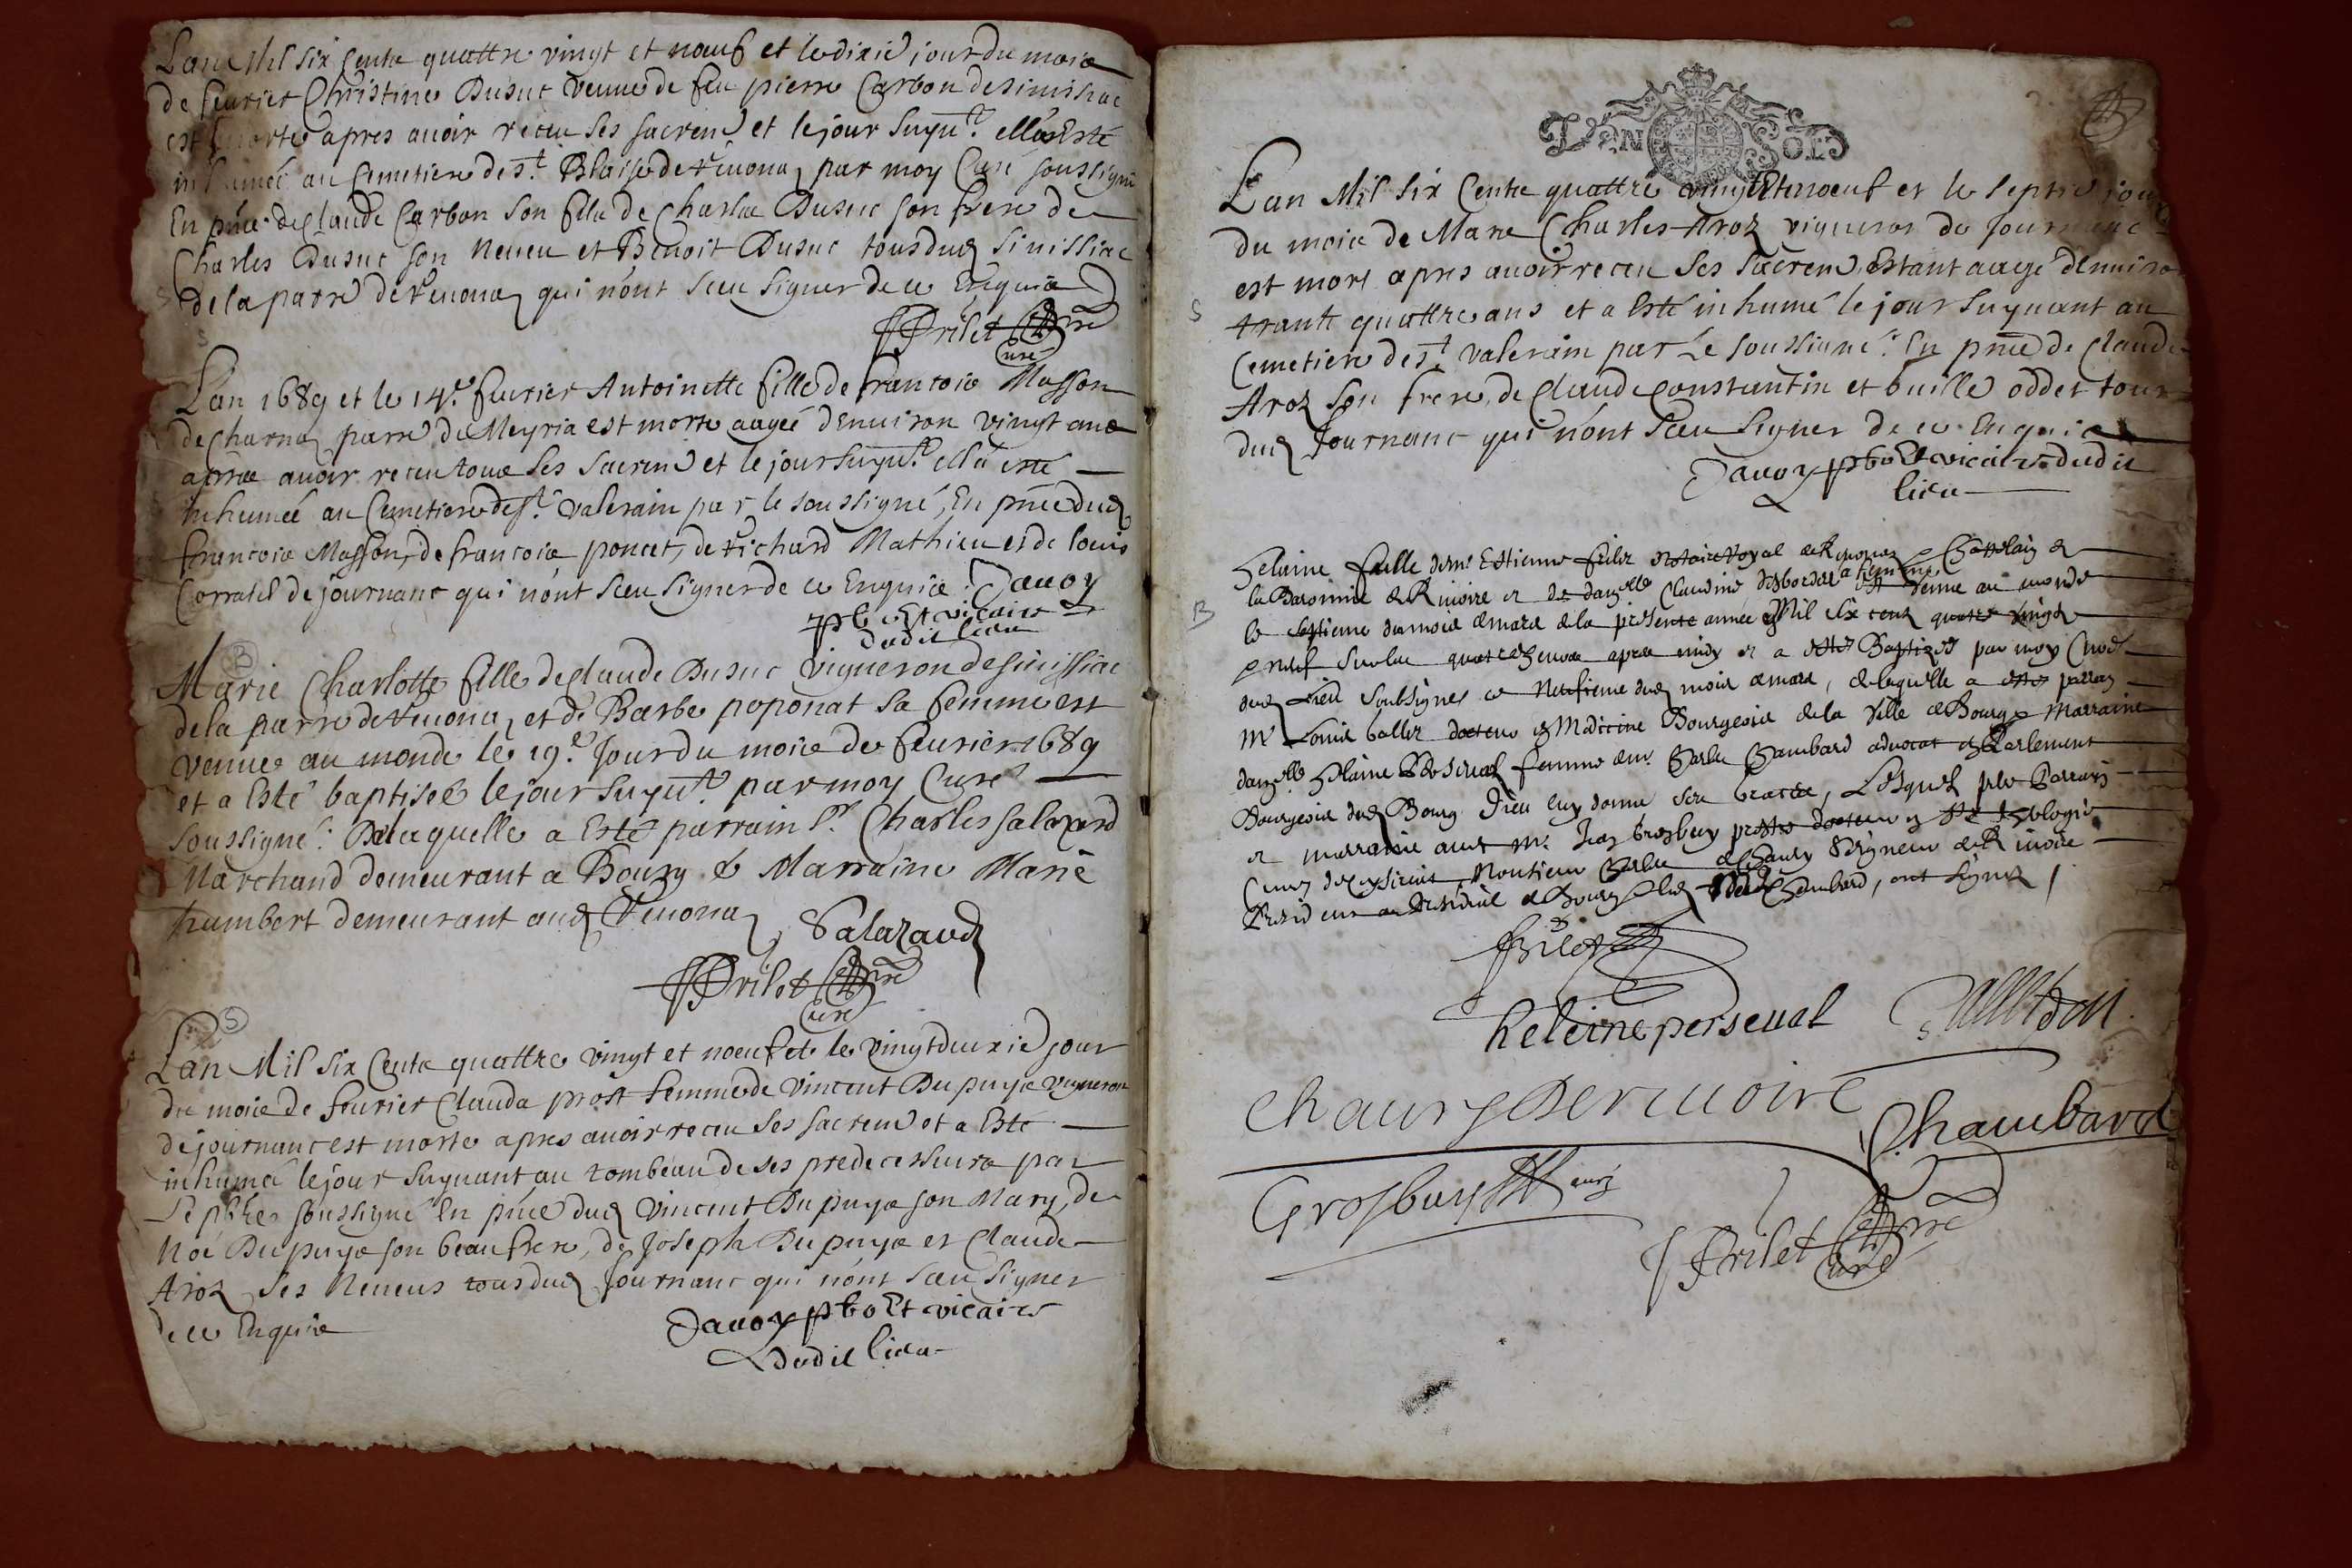 Lan Mil six Cents quattre vingt et noeuf et le dixie jour du mois
de feurier Christine Dusuc veuue de feu pierre Carbon de simissiac
est morte apres auoir receu ses sacrem et le jour suyut ell'a Esté
inhumée au Cemetiere de St Blaise de reuonas par moy Curé soussigné
En pñce de Claude Carbon son fils de Charles Dusuc son frere de
Charles Dusuc son Neueu et Benoit Dusuc tous dud simissiac
de la parre de reuonas qui n'ont sceu signer de ce Enquis
S
FFrilet pre
Curé
S
L'an 1689 et le 14e feurier Antoinette fille de francois Masson
de Charnas parre du Meyria est morte aagée d'Enuiron vingt ans
apres auoir receu tous ses sacrem et le jour suyut ell'a esté
inhumée au Cemetiere de St valerain par le soussigné, En pñce dud
francois Masson, de francois poncet, de richard Mathieu et de louis
Corratel de journanc qui n'ont sceu signer de ce Enquis. Dauoy
pb Et vicaire
dudit lieu
B
Marie Charlotte fille de Claude Dusuc vigneron de simissiac
de la parre de reuonas et de Barbe poponat sa femme est
venue au monde le 19e Jour du mois de feurier 1689
et a Esté baptisée le jour suyut par moy Curé
soussigné. De laquelle a Esté parrain Sr Charles salazard
Marchand demeurant a Bourg & Marraine Marie
humbert demeurant aud reuonas
Salazard
FFrilet pre
Curé
S
Lan Mil six Cents quattre vingt et noeuf et le vingtdeuxie jour
du mois de feurier Clauda prost femme de vincent Dupuys vigneron
de journanc est morte apres auoir receu ses sacrem et a Esté
inhumée le jour suyuant au tombeau de ses predecesseurs par
Le pbre soussigné En pñce dud vincent Dupuys son Mary, de
Noé Dupuys son beaufrere, de Joseph Dupuys et Claude
Aroz ses Neueus tous dud Journanc qui n'ont sceu signer
de ce Enquis
Dauoy pb Et vicaire
dudit lieu
DEN SOLS
Lan Mil six Cents quattre vingt Et noeuf et le septie jour
du mois de Mars Charles Aroz vigneron de Journanc
est mort apres auoir receu ses sacrem Estant aagé d'Enuiron
S
trante quattre ans et a Esté inhumé le jour suyuant au
Cemetiere de St valerain par Le soussigné. En pñce de Claude
Aroz son frere, de Claude Constantin et oddet tous
dud Journanc qui n'ont sceu signer de ce Enquis
Dauoy pb Et vicaire dudit
lieu
helaine fille de mr Estienne frilet notaire Royal de Reuonas Chastelain de
la Baronnie de Riuoire et de damelle Claudine desbordes sa femme Est venue au monde
B
le septieme du mois de mars de la presente année Mil six cents quatre vingts
neuf sur les quatre heures apres midy et a esté Baptizée par moy Curé
dud Lieu soubsigné ce Neufieme dud mois de mars, de laquelle a esté parrain
Mr Louis docteur en Medicine Bourgeois de la ville de Bourg & Marraine
damelle helaine Perseual femme de mr Charles Chambard aduocat en Parlement
Bourgeois dud Bourg Dieu luy donne ses graces, Lesquels Parrain
et marraine auec Mr Jean Grosbuy prestre docteur en Ste Theologie
Curé de Ceyseriat, Monsieur Charles de Chaury Seigneur de Riuoire
President au Presidial de Bourg & led Sr Chambard, ont signé /
frilet
heleine perseual
Chaury De riuoire
Chambard
Grosbuy curé
FFrilet pre
Curé